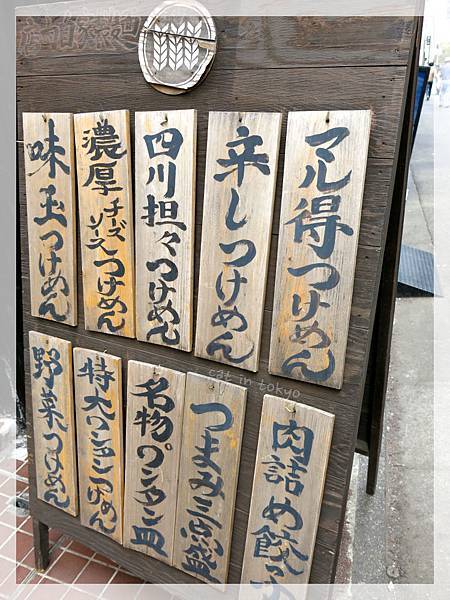 マル得つけめん
辛しつけめん
四川担々つけめん
濃厚チーズソースつけめん
味玉つけめん
肉詰め餃子
つまみ三点盛
名物ワンタン皿
特大ワンタンつけめん
野菜つけめん
cat in tokyo